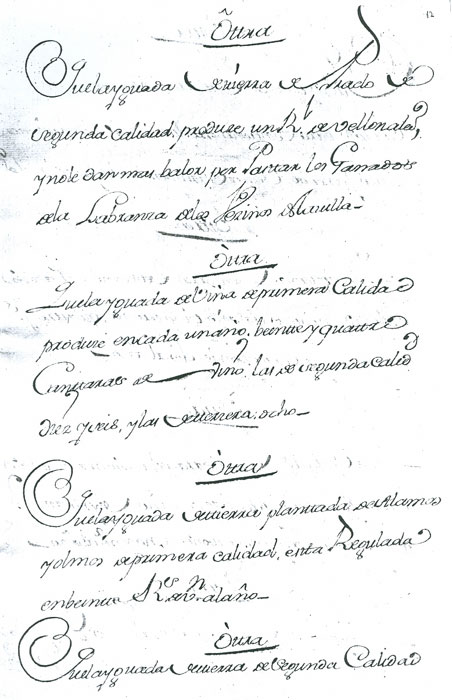 12
Otra
Que la yguada de tierra de Prado de
segunda Calidad, produze un Rl. de vellon al a?,
y no le dan mas balor por Pastar los Ganados
de la Labranza de los Vezinos de la villa-
Otra
Que la yguada de Viña de primera Calidad
produze en cada un año, beinte y quattro
Cantaras de Vino; las de segunda Calid
diez y seis, y las de terzera, ocho-
Otra
Que la yguada de tierra plantada de Alamos
y olmos de primera calidad, esta Regulada
en beinte Rs. de Vn. al año-
Otra
Que la yguada de tierra de segunda Calidad